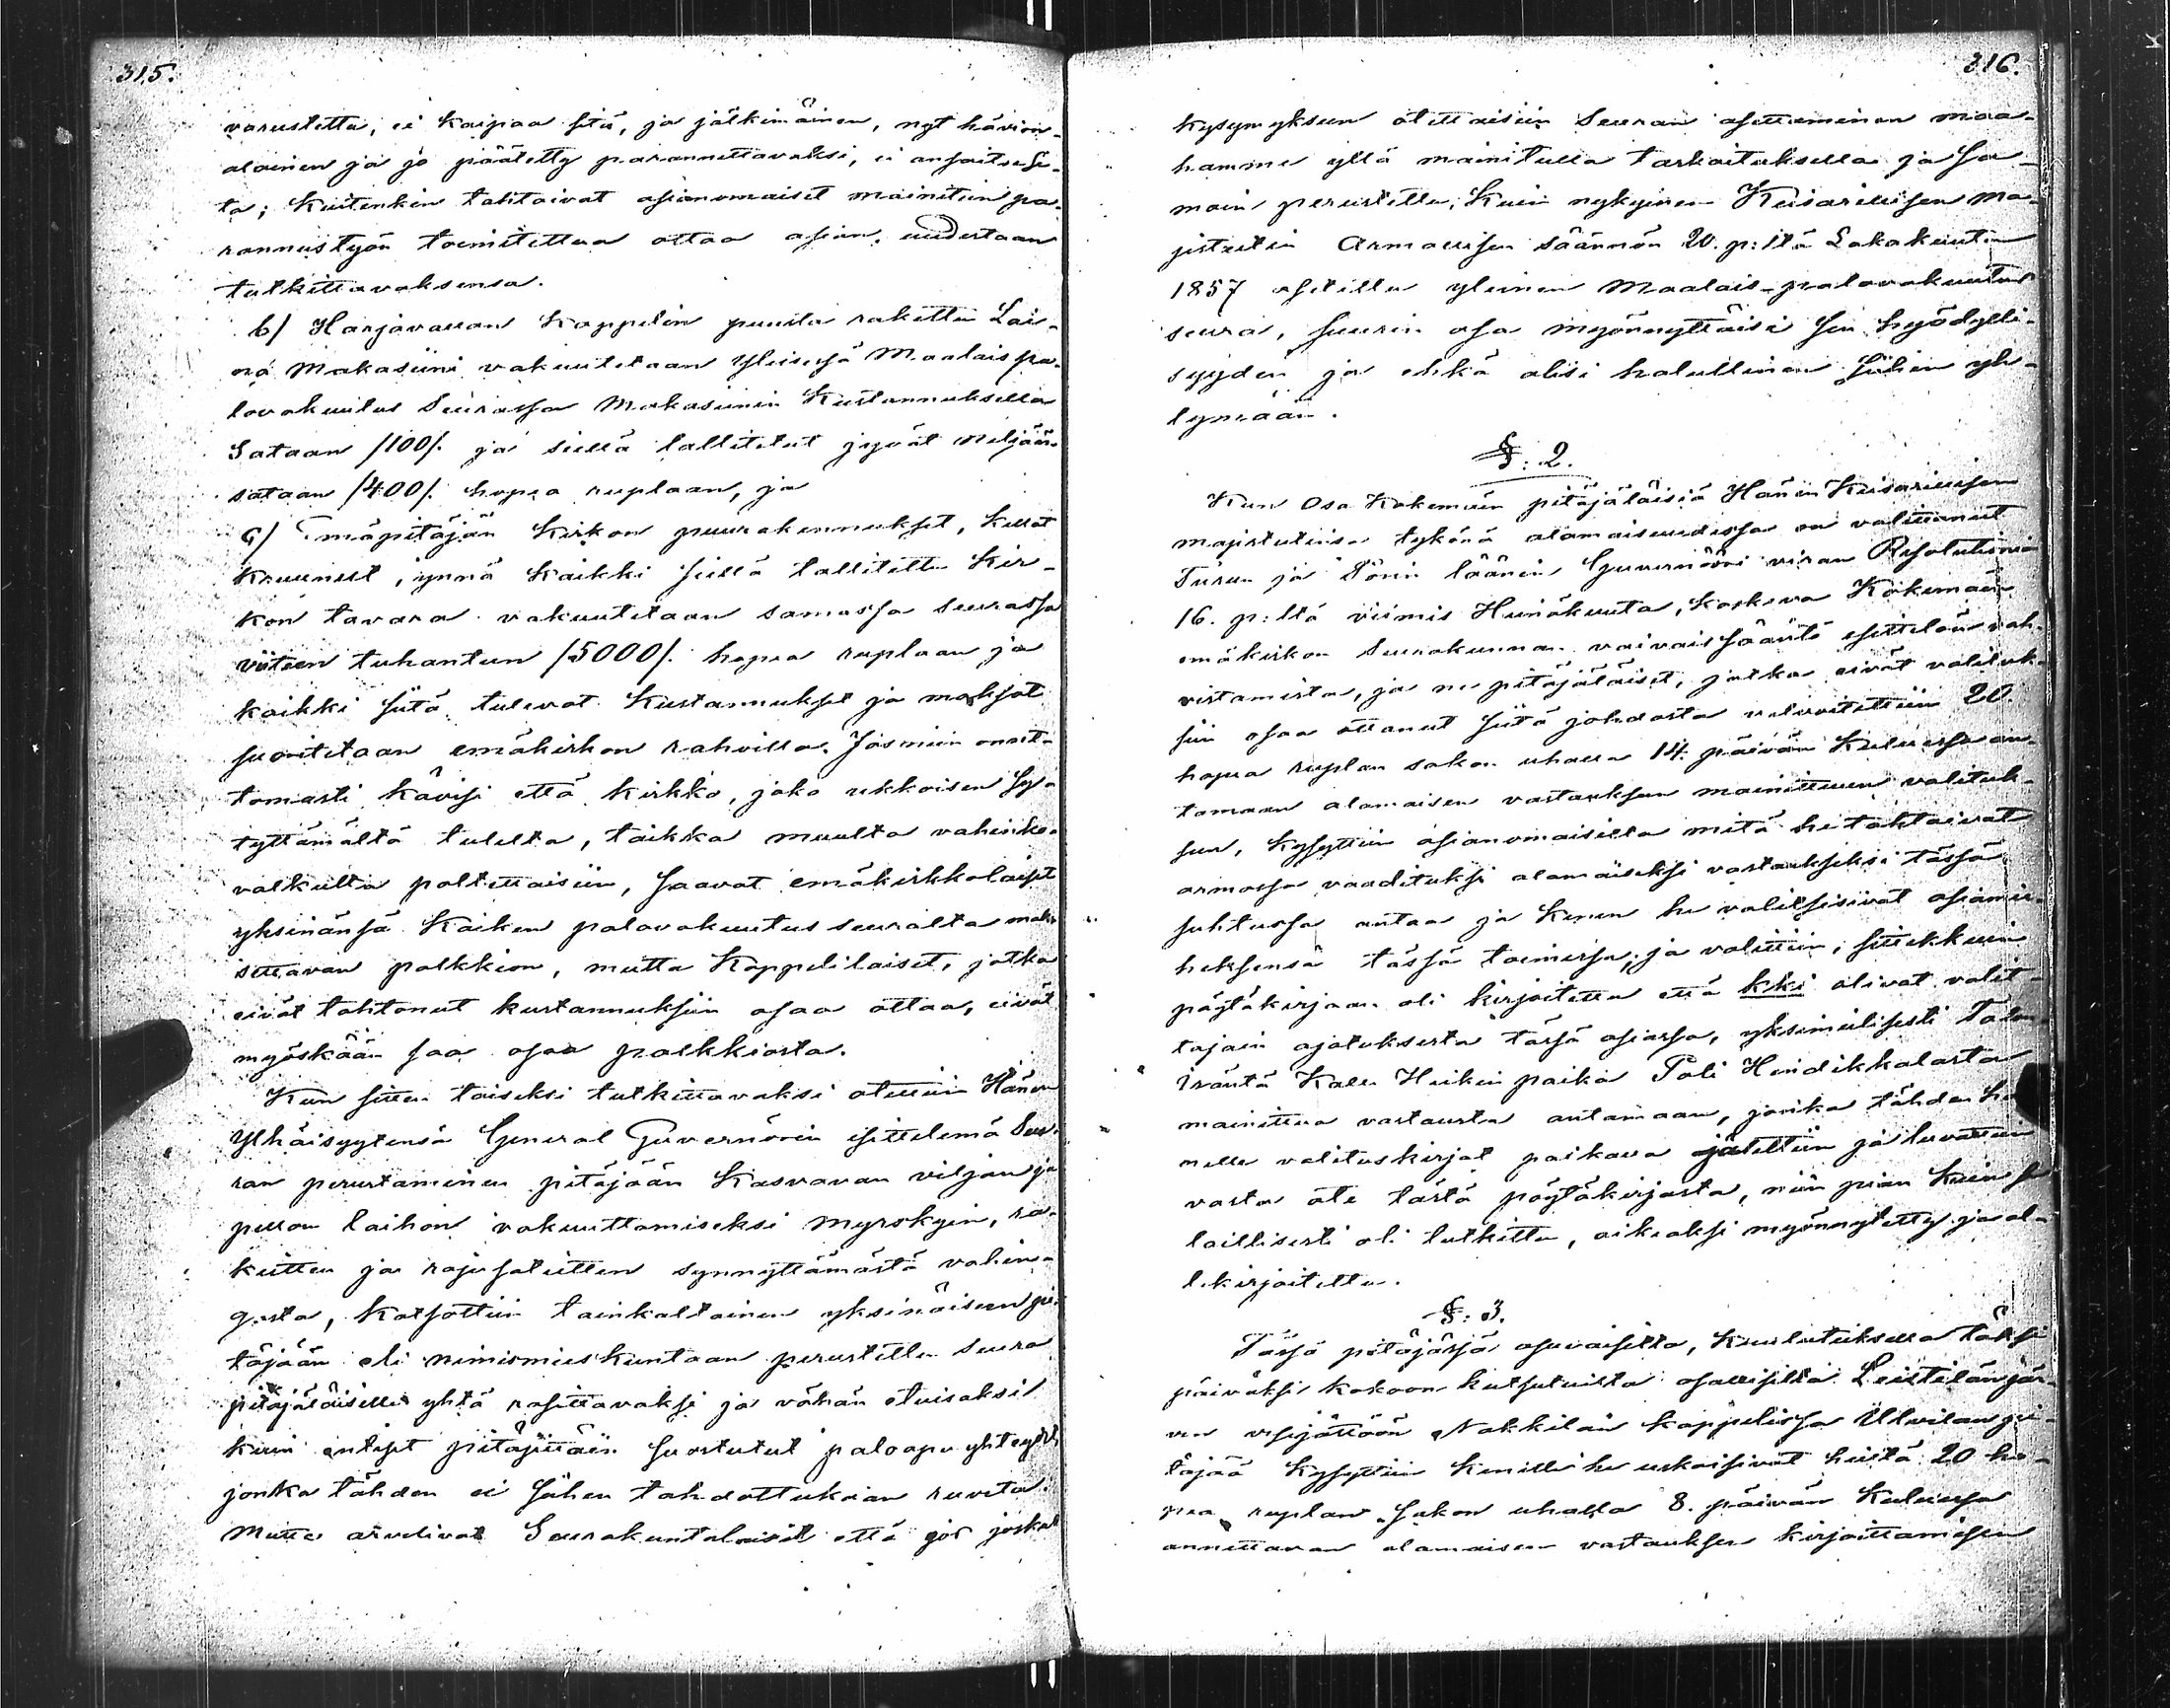 315.
varustettu, ei kaipaa sitä, ja jälkimäinen, nyt hävion-
alainen ja jo päätetty parannettavaksi, ei ansaitse si-
tä; kuitenkin tahtoivat asianomaiset mainitun pa-
rannustyön toimitettua ottaa asian uudestaan
tutkittavaksensa.
b) Harjavallan Kappelin puusta rakettu Lai-
na Makasiini vakuutetaan Yleisessä Maalais pa-
lovakuutus Seurassa Makasiinin Kustannuksella
Sataan /100/. ja siellä tallitetut jyvät neljään-
sataan /400/. hopea ruplaan, ja
c) Emäpitäjän Kirkon puurakennukset, kellot
Kruunut, ynnä kaikki siellä tallitettu Kir-
kon tavara vakuutetaan samassa seurassa
viiteen tuhanteen /5000/. hopea ruplaan ja
kaikki siitä tulevat Kustannukset ja maksot
suoritetaan emäkirkon rahoilla. Jos niin onnet-
tomasti kävisi että kirkko, joko ukkoisen sy-
tyttämältä tulelta, taikka muulta vahinko-
valkialta poltettaisiin, saavat emäkirkkolaiset
yksinänsä Kaiken palovakuutus seuralta mak-
settavan palkkion, mutta Kappelilaiset, jotka
eivät tahtonut kustannuksiin osaa ottaa, eivät
myöskään saa osaa palkkiosta.
Kun sitten toiseksi tutkittavaksi otettiin Hänen
Ylhäisyytensä General Guvernörin esittelemä Seu-
ran perustaminen pitäjään Kasvavan viljan ja
pellon laihon vakuuttamiseksi myrskyin, ra-
keitten ja rajusateitten synnyttämästä vahin-
gosta, katsottiin tainkaltainen yksinäiseen pi-
täjään eli nimismieskuntaan perustettu seura
pitäjäläisille yhtä rasittavaksi ja vähän etuisaksi
kuin entiset pitäjittäin suostutut paloapu yhteydet
jonka tähden ei siihen tahdottukaan ruveta.
Mutta arvelivat Seurakuntalaiset että jos joskus
316.
kysymykseen otettaisiin Seuran asettaminen maa-
hamme yllä mainitulla tarkoituksella ja sa-
moin perustettu, kuin nykyinen Keisarillisen Ma-
jistetin Armollisen säännön 20. p:ltä Lokakuuta
1857 asetettu yleinen Maalais-palovakuutus
seura, suurin osa myönnyttäisi sen hyödylli-
syyden ja ehkä olisi halullinen siihen yh-
tymään.
§: 2.
Kun Osa Kokemäen pitäjäläisiä Hänen Keisarillisen
majistetinsa tykönä alamaisuudessa on valittanut
Turun ja Porin läänin Guvernööri viran Resolutionia
16. p:ltä viimis Heinäkuuta, koskeva Kokemäen
emäkirkon Seurakunnan vaivais sääntö esittelön vah-
vistamista, ja ne pitäjäläiset, jotka eivät valituk-
siin osaa ottanut siitä johdosta velvoitettiin 20.
hopea ruplan sakon uhalla 14. päivän kuluessa an-
tamaan alamaisen vastauksen mainittuun valituk-
seen, kysyttiin asianomaisilta mitä he tahtoivat
armossa vaadituksi alamaiseksi vastaukseksi tässä
suhteessa antaa ja kenen he valitsisivat asiamie-
heksensä tässä toimessa; ja valittiin, sittekkuin
pöytäkirjaan oli kirjoitettu että kki olivat valit-
tajain ajatuksesta tässä asiassa, yksimielisesti Talon
Isäntä Kalle Heikin paika Poli Hendikkalasta
mainittua vastausta antamaan, jonka tähden hä-
nelle valituskirjat paikalla jätettiin ja luvattiin
vasta ote tästä pöytäkirjasta, niin pian kuin se
laillisesti oli tutkittu, oikiaksi myönnytetty ja al-
lekirjoitettu.
§: 3.
Tässä pitäjässä asuvaisilta, kuulutuksella täksi
päiväksi kokoon kutsutuilta osallisilta Leistilän jär-
ven vesijättöön Nakkilan kappelissa Ullvilan pi-
täjää kysyttiin kenille he uskoisivat heiltä 20 ho-
pea ruplan Sakon uhalla 8. päivän Kuluessa
annettavan alamaisen vastauksen kirjoittamisen